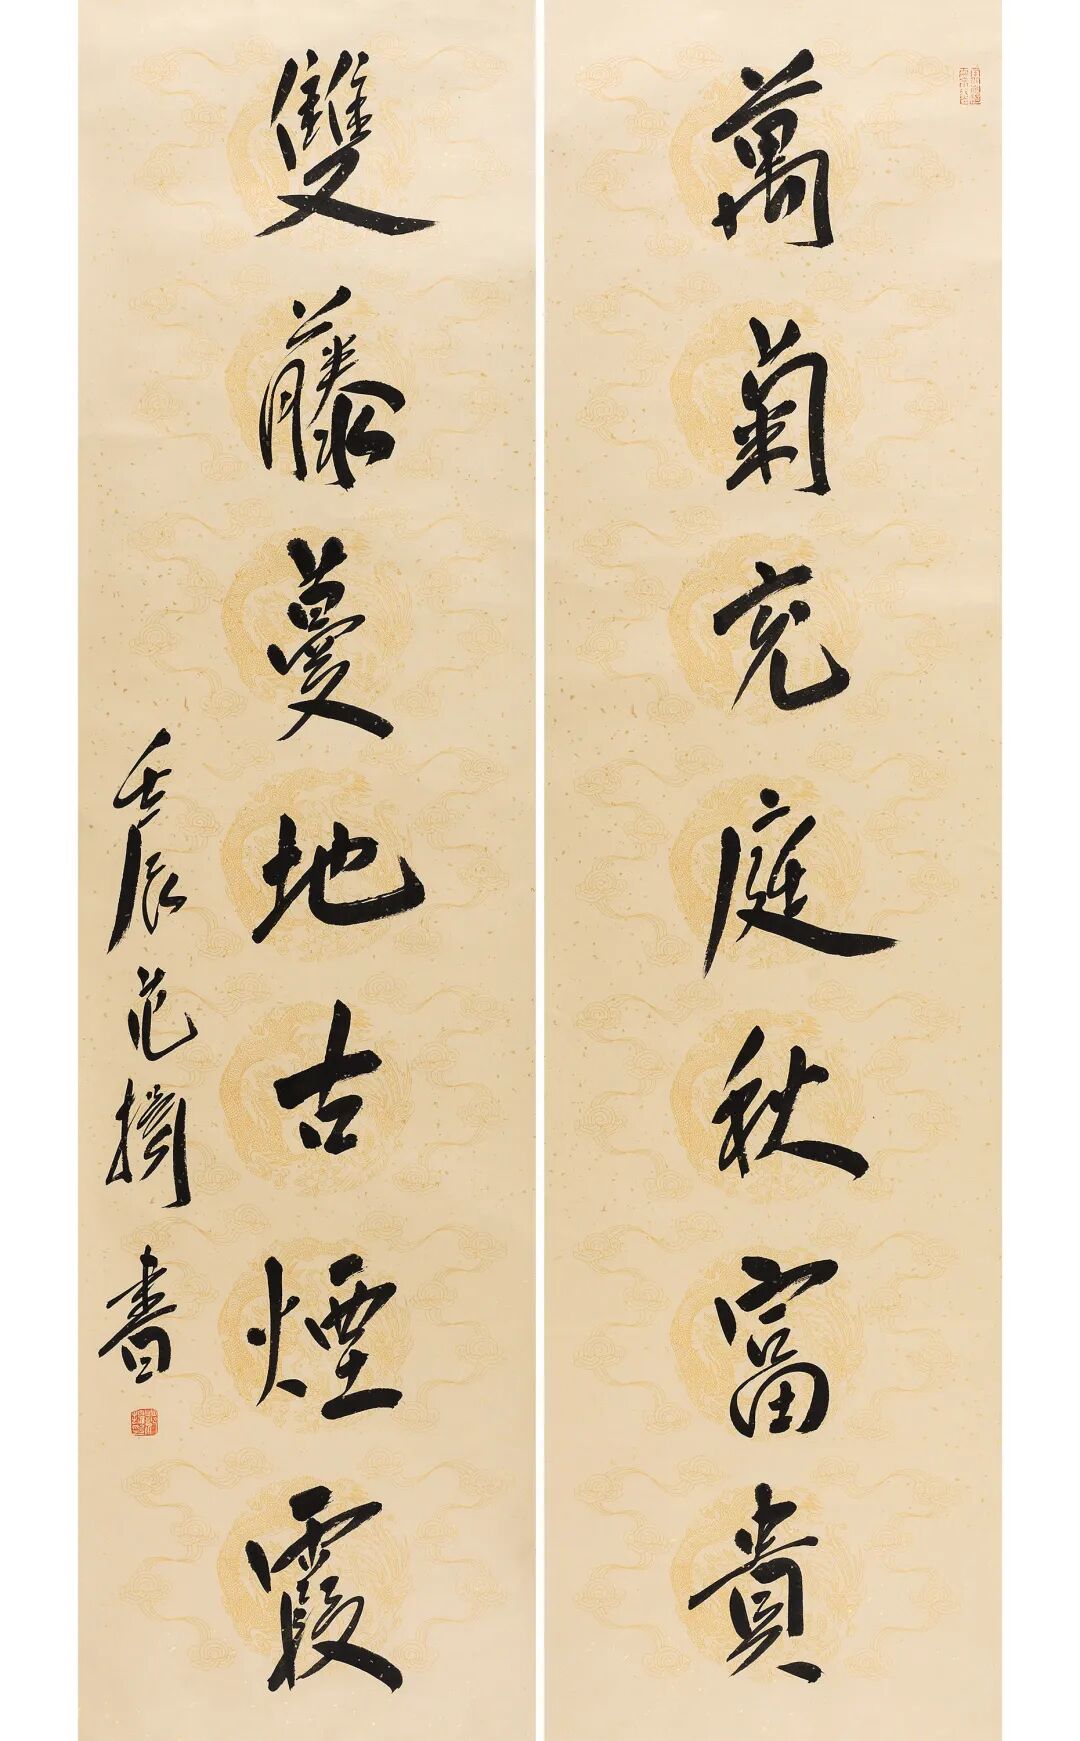 萬菊充庭秋富貴
雙藤蔓地古煙霞
壬辰范擳書